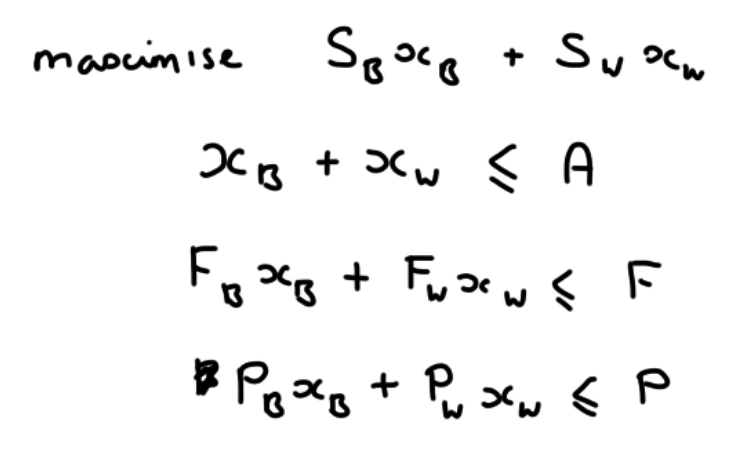 maximise S_B x_B + S_W x_W
x_B + x_W ⩽ A
F_B x_B + F_W x_W ⩽ F
P_B x_B + P_W x_W ⩽ P